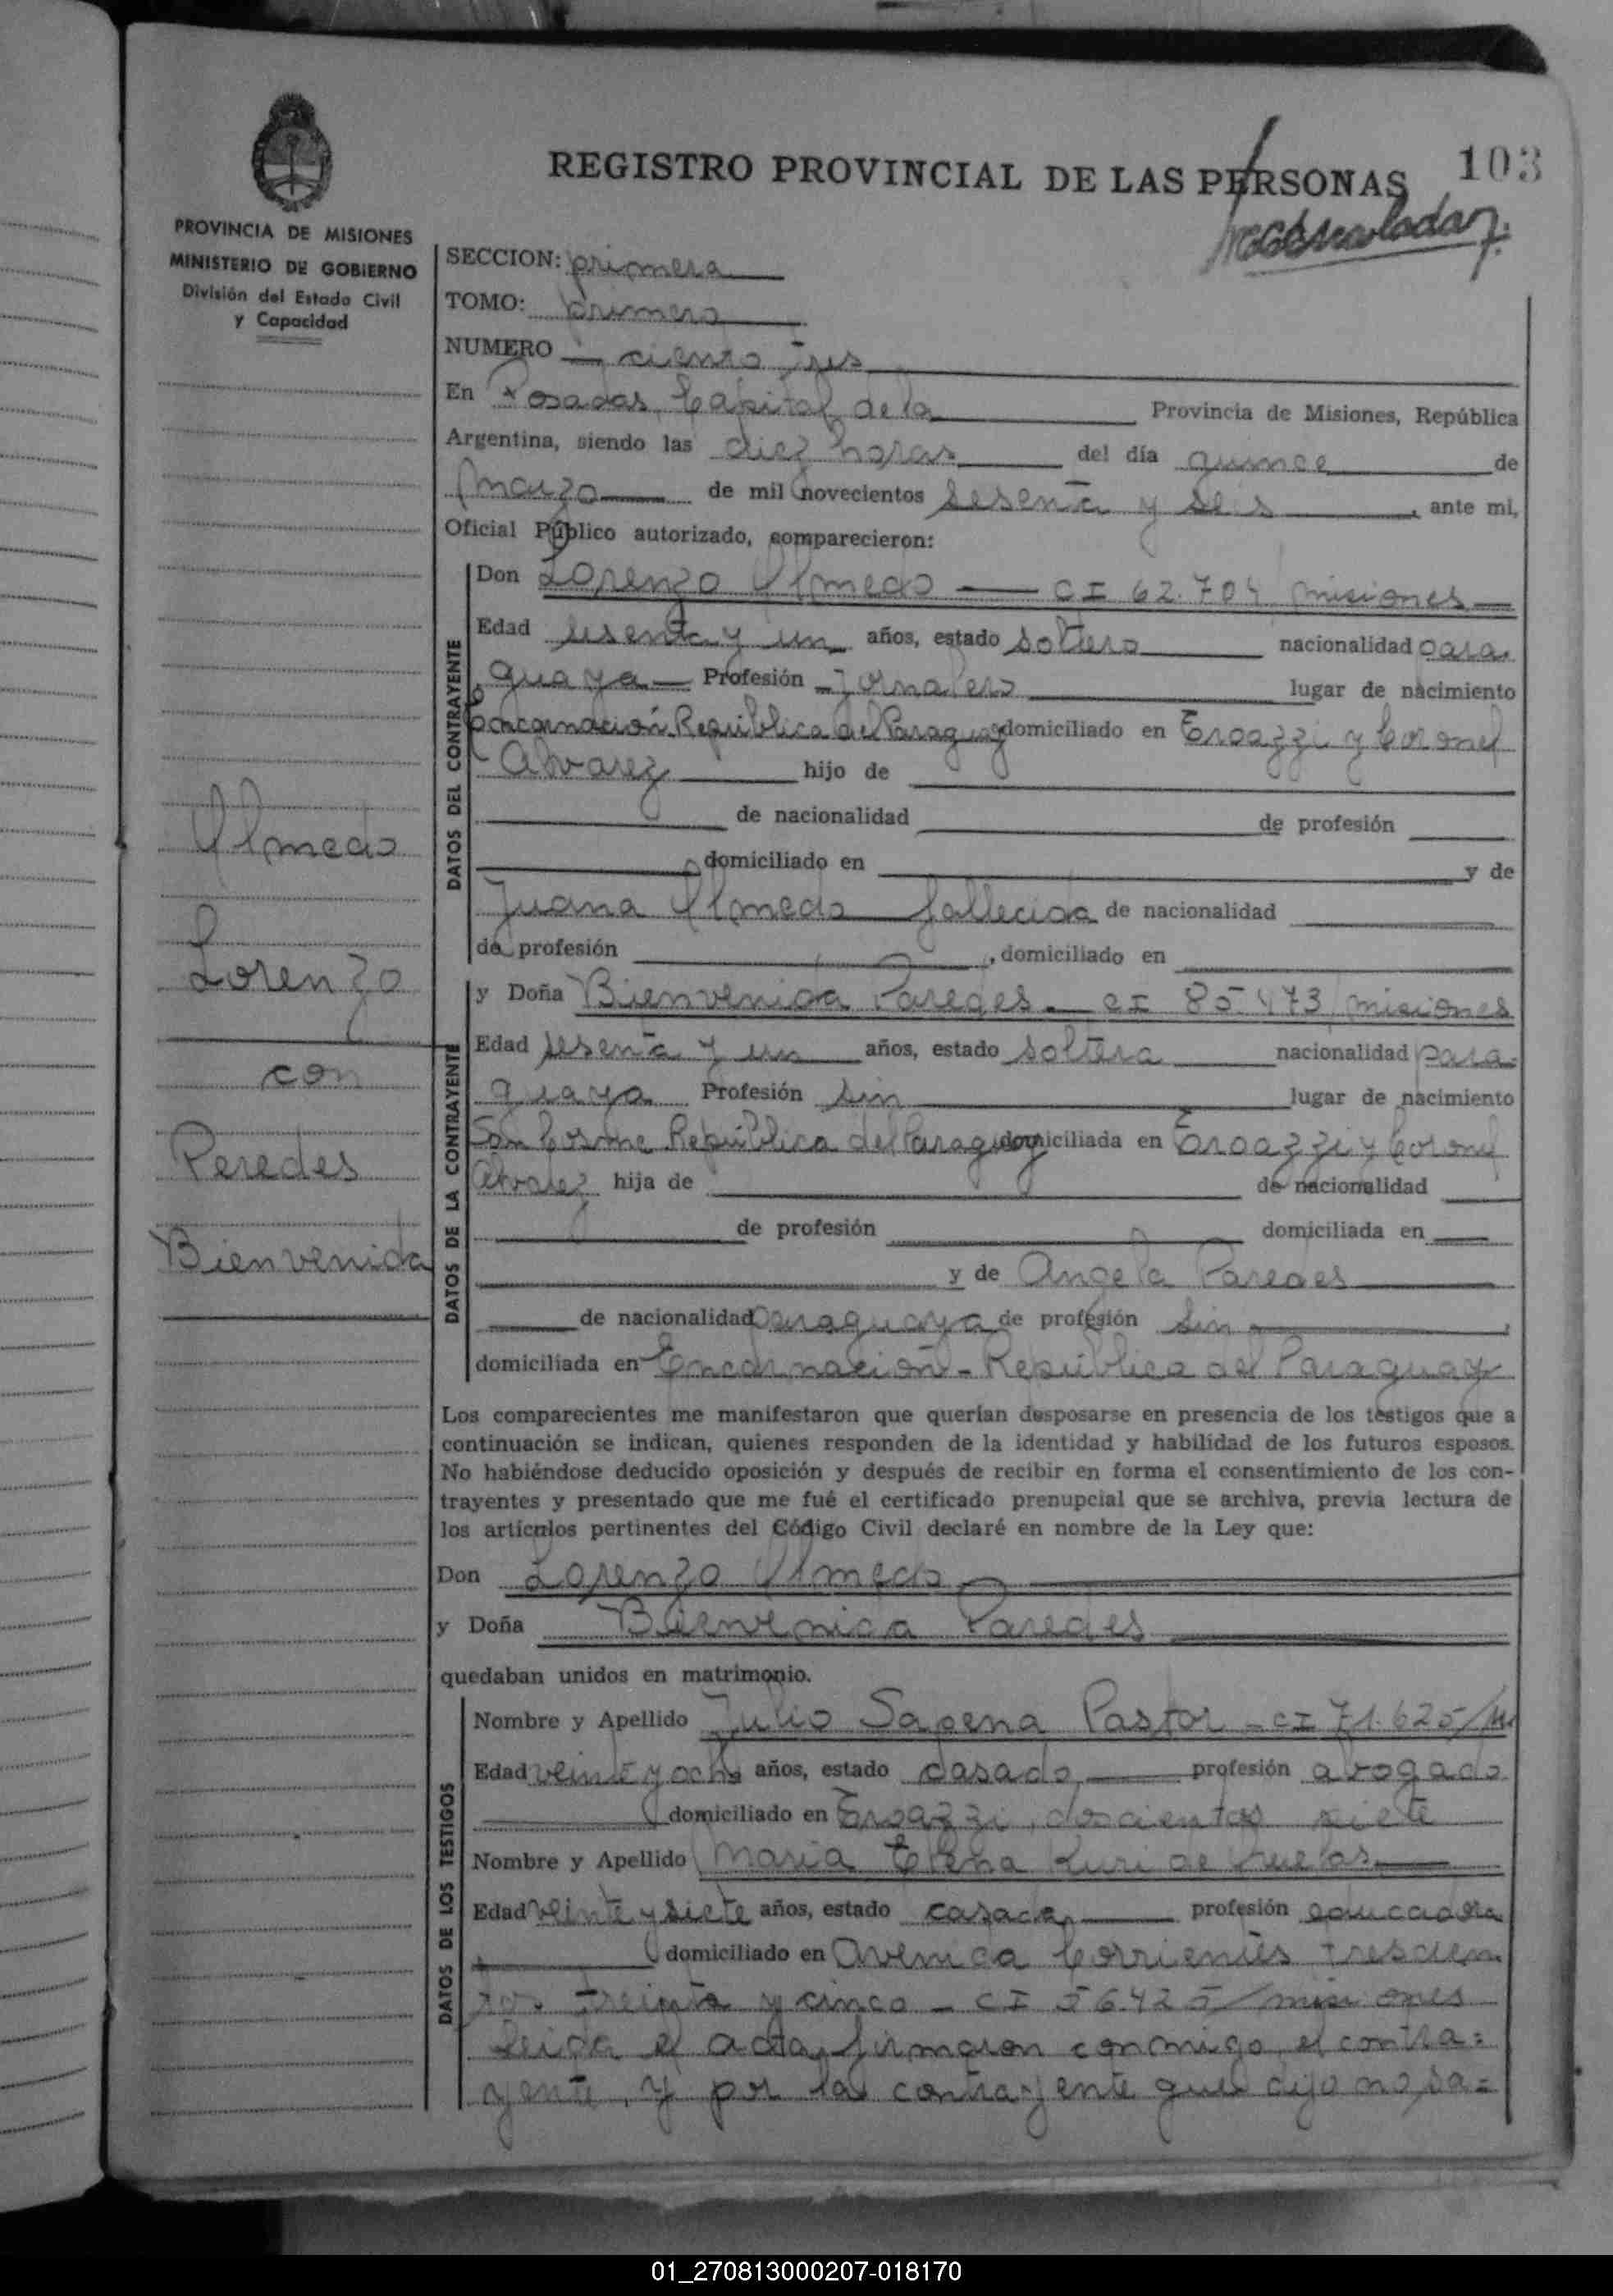 REGISTRO PROVINCIAL DE LAS PERSONAS
103
PROVINCIA DE MISIONES
MINISTERIO DE GOBIERNO
División del Estado Civil
y Capacidad
SECCION: primera
TOMO: primero
NUMERO ciento tres
En Posadas, Capital de la Provincia de Misiones, República
Argentina, siendo las diez horas del día quince de
marzo de mil novecientos sesenta y seis, ante mi,
Oficial Público autorizado, comparecieron:
DATOS DEL CONTRAYENTE
Don Lorenzo Olmedo — CI 62.704 / misiones
Edad sesenta y un años, estado soltero nacionalidad para
guaya Profesión Jornalero lugar de nacimiento
Encarnación República del Paraguay domiciliado en Eroazzi y Coronel
Alvarez hijo de
de nacionalidad de profesión
domiciliado en y de
Juana Olmedo fallecida de nacionalidad
de profesión , domiciliado en
Olmedo
Lorenzo
con
Peredes
Bienvenida
DATOS DE LA CONTRAYENTE
y Doña Bienvenida Paredes - CI 85.473 / misiones
Edad sesenta y un años, estado soltera nacionalidad para=
guaya Profesión sin lugar de nacimiento
San Cosme República del Paraguay domiciliada en Eroazzi y Coronel
Alvarez hija de de nacionalidad
de profesión domiciliada en
y de Angela Paredes
de nacionalidad paraguaya de profesión sin,
domiciliada en Encarnación - República del Paraguay
Los comparecientes me manifestaron que querían desposarse en presencia de los testigos que a
continuación se indican, quienes responden de la identidad y habilidad de los futuros esposos.
No habiéndose deducido oposición y después de recibir en forma el consentimiento de los con-
trayentes y presentado que me fué el certificado prenupcial que se archiva, previa lectura de
los artículos pertinentes del Código Civil declaré en nombre de la Ley que:
Don Lorenzo Olmedo
y Doña Bienvenida Paredes
quedaban unidos en matrimonio.
DATOS DE LOS TESTIGOS
Nombre y Apellido Julio Sapena Pastor - CI 71.625/M
Edad veinte y ocho años, estado casado, profesión abogado
domiciliado en Eroazzi, doscientos siete
Nombre y Apellido Maria Elena Kuri de
Edad veinte y siete años, estado casada, profesión educadora
domiciliado en Avenida Corrientes trescien
tos treinta y cinco - CI 56.425/misiones
Leida el acta, firmaron conmigo, el contra=
yente, y por la contrayente que dijo no sa=
01_270813000207-018170